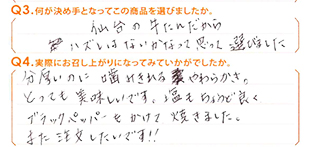 Q3.何が決め手となってこの商品を選びましたか。
仙台の牛たんだから
ハズレはないかなって思って選びました
Q4.実際にお召し上がりになってみていかがでしたか。
分厚いのに噛みきれるやわらかさ。
とっても美味しいです。塩もちょうど良く
ブラックペッパーをかけて焼きました。
また注文したいです!!